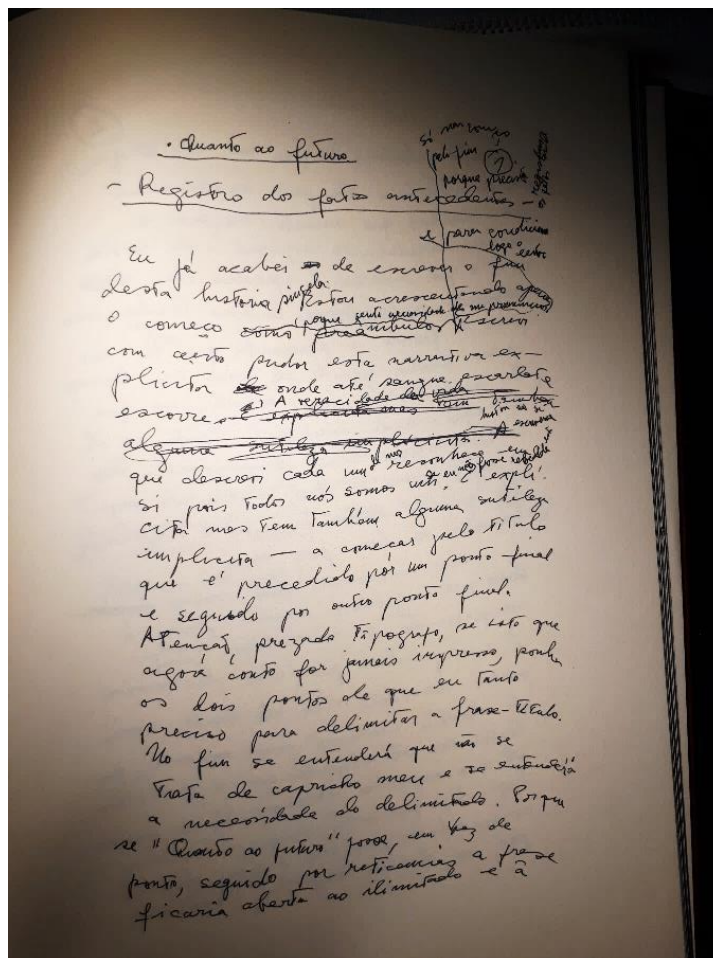 . Quanto ao futuro
só não começo
pelo fim
porque preciso
- Registro dos fatos antecedentes -
e para condicion
logo o
Eu já acabei de escrever o fim
desta história singela. Estou acrescentando apenas
o começo porque sinto necessidade de
como preâmbulo. Escrevi
com certo pudor esta narrativa ex-
plícita onde até sangue escarlate
A veracidade da vida
escorre. É explícita mas tem também
alguma sutileza implícita. A
que descrevi cada um se reconhece em
si pois todos nós somos um. É explí-
cita mas tem também alguma sutileza
implícita — a começar pelo título
que é precedido por um ponto-final
e seguido por outro ponto final.
Atenção, prezado tipógrafo, se isto que
agora conto for jamais impresso, ponha
os dois pontos de que eu tanto
preciso para delimitar a frase-título.
No fim se entenderá que não se
trata de capricho meu e se entenderá
a necessidade do delimitado. Porque
se "Quanto ao futuro" fosse, em vez de
ponto, seguido por reticências a frase
ficaria aberta ao ilimitado e à